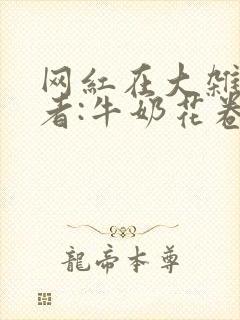 网红在大雑
者:牛奶花卷
龍帝本尊